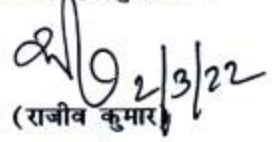 2/3/22
(राजीव कुमार)